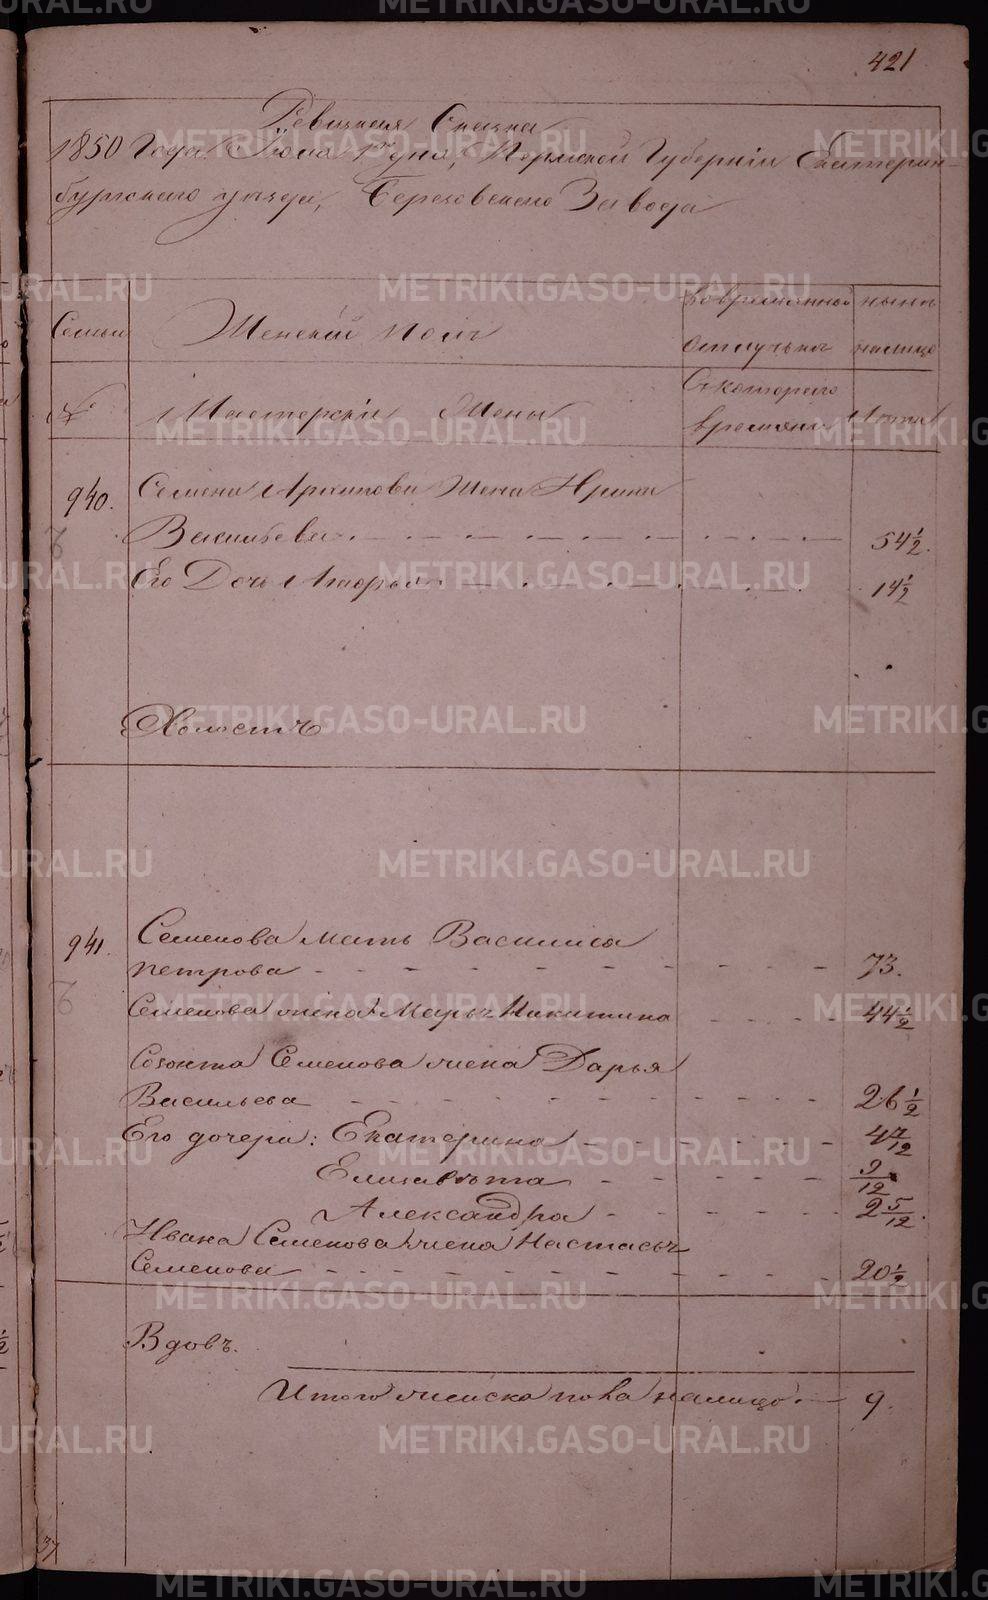 421
Ревизская Сказка
1850 Года Іюля 1го дня, Пермской Губерніи Екатерин-
бургскаго уезда, Березовскаго Завода
Семьи
Женскій полъ
Во временной
отлучкѣ
нынѣ
налицо
№
Мастерскіе Жены
Съ котораго
времяни
Лѣта
940.
Семена Архипова Жена Ирина
Васильева 54 1/2.
Его Дочь Марья 14 1/2
Холостъ
941.
Семенова мать Василиса
петрова 73.
Семенова жена Марья Никитина 44 1/2
Созонта Семенова жена Дарья
Васильева 26 1/2
Его дочери: Екатерина 4 7/12
Елисавета 9/12
Александра 2 5/12.
Ивана Семенова жена Настасья
Семенова 20 1/2
Вдовъ.
Итого женска пола налицо 9.
37
METRIKI.GASO-URAL.RU